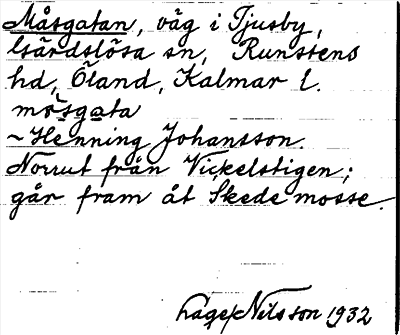 Måsgatan, väg i Tjusby,
Gärdslösa sn, Runstens
hd, Öland, Kalmar l.
mòsgata
~ Henning Johansson.
Norrut från Vickelstigen;
går fram åt Skedemosse.
Lage Nilsson 1932